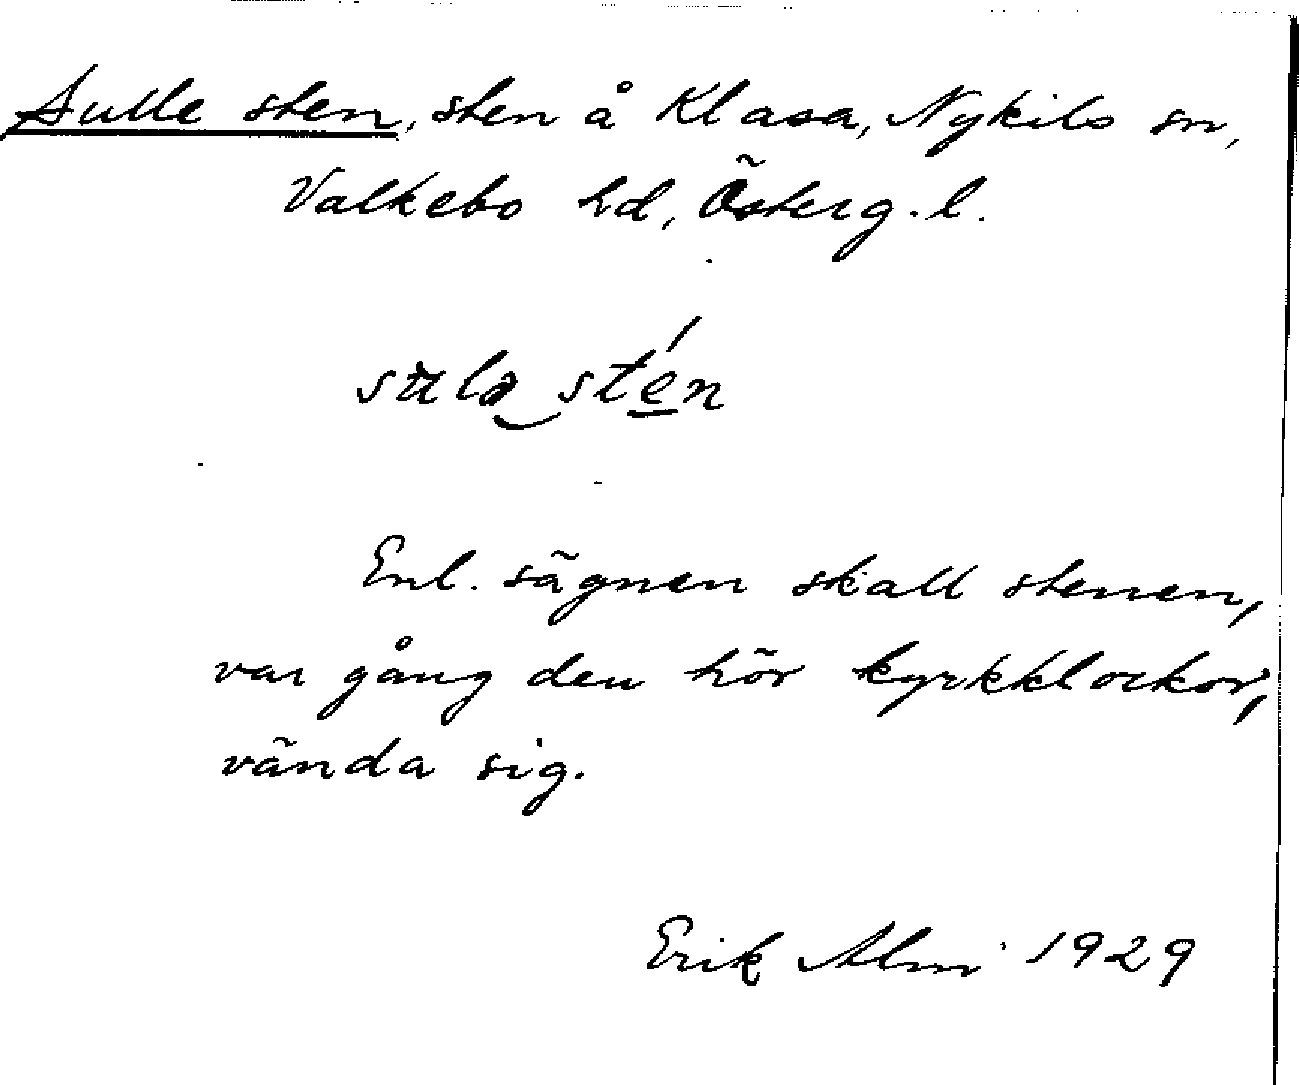 Sulle sten, sten å Klasa, Nykils sn,
Valkebo hd, Österg.l.
sulə stén
Enl. sägnen skall stenen,
var gång den hör kyrkklockor,
vända sig.
Erik Alm 1929